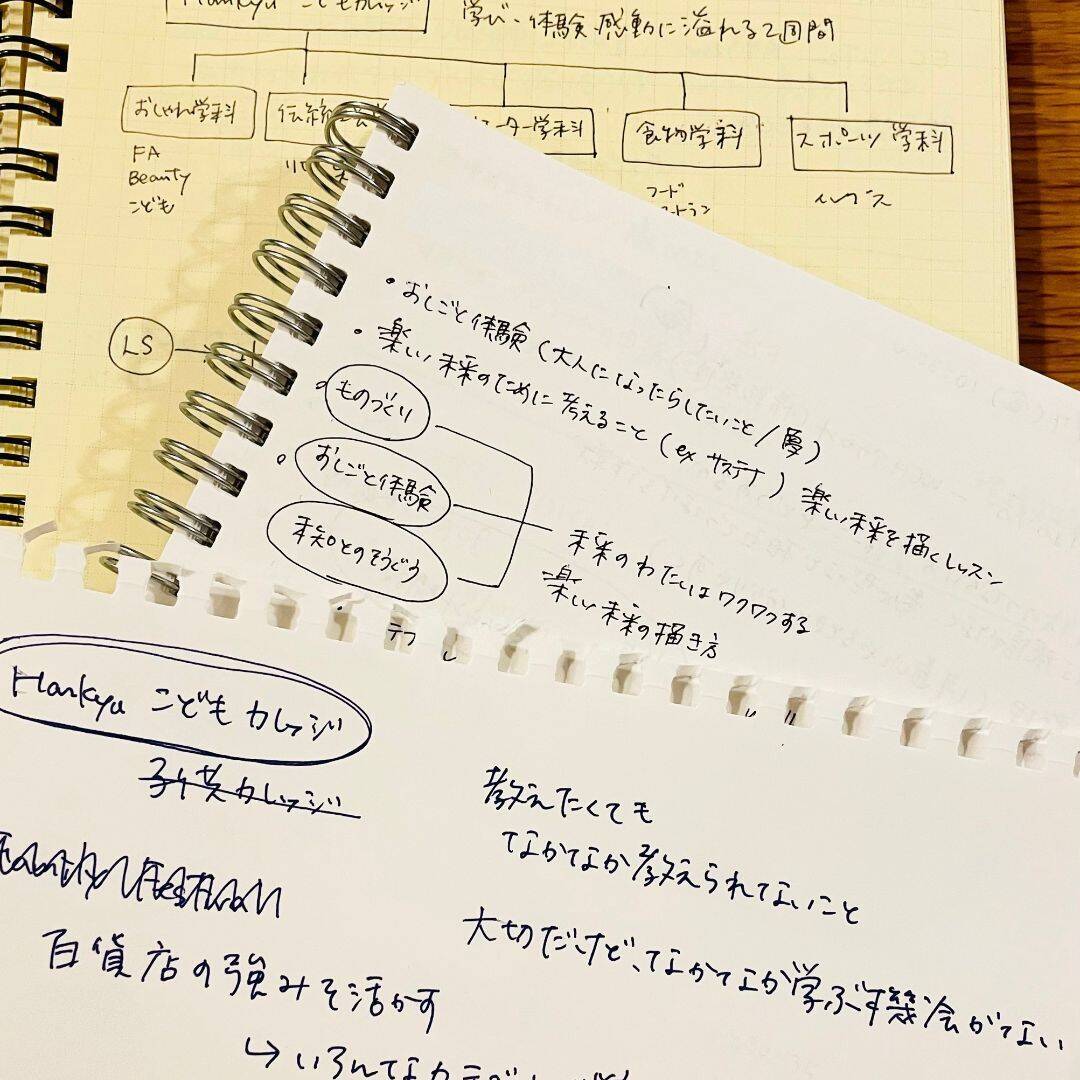 Hankyu こどもカレッジ
学び、体験、感動に溢れる2週間
おしゃれ学科
伝統
ーター学科
食物学科
スポーツ学科
FA
Beauty
こども
フード
LS
・おしごと体験(大人になったらしたいこと/夏)
・楽しい未来のために考えること(ex サステナ) 楽しい未来を描くレッスン
・ものづくり
・おしごと体験
未知とのそうぐう
未来のわたしはワクワクする
楽しい未来の描き方
Hankyu こどもカレッジ
子供カレッジ
教えたくても
なかなか教えられてないこと
大切だけど、なかなか学ぶ機会がない
百貨店の強みを活かす
↳いろんなカテゴ